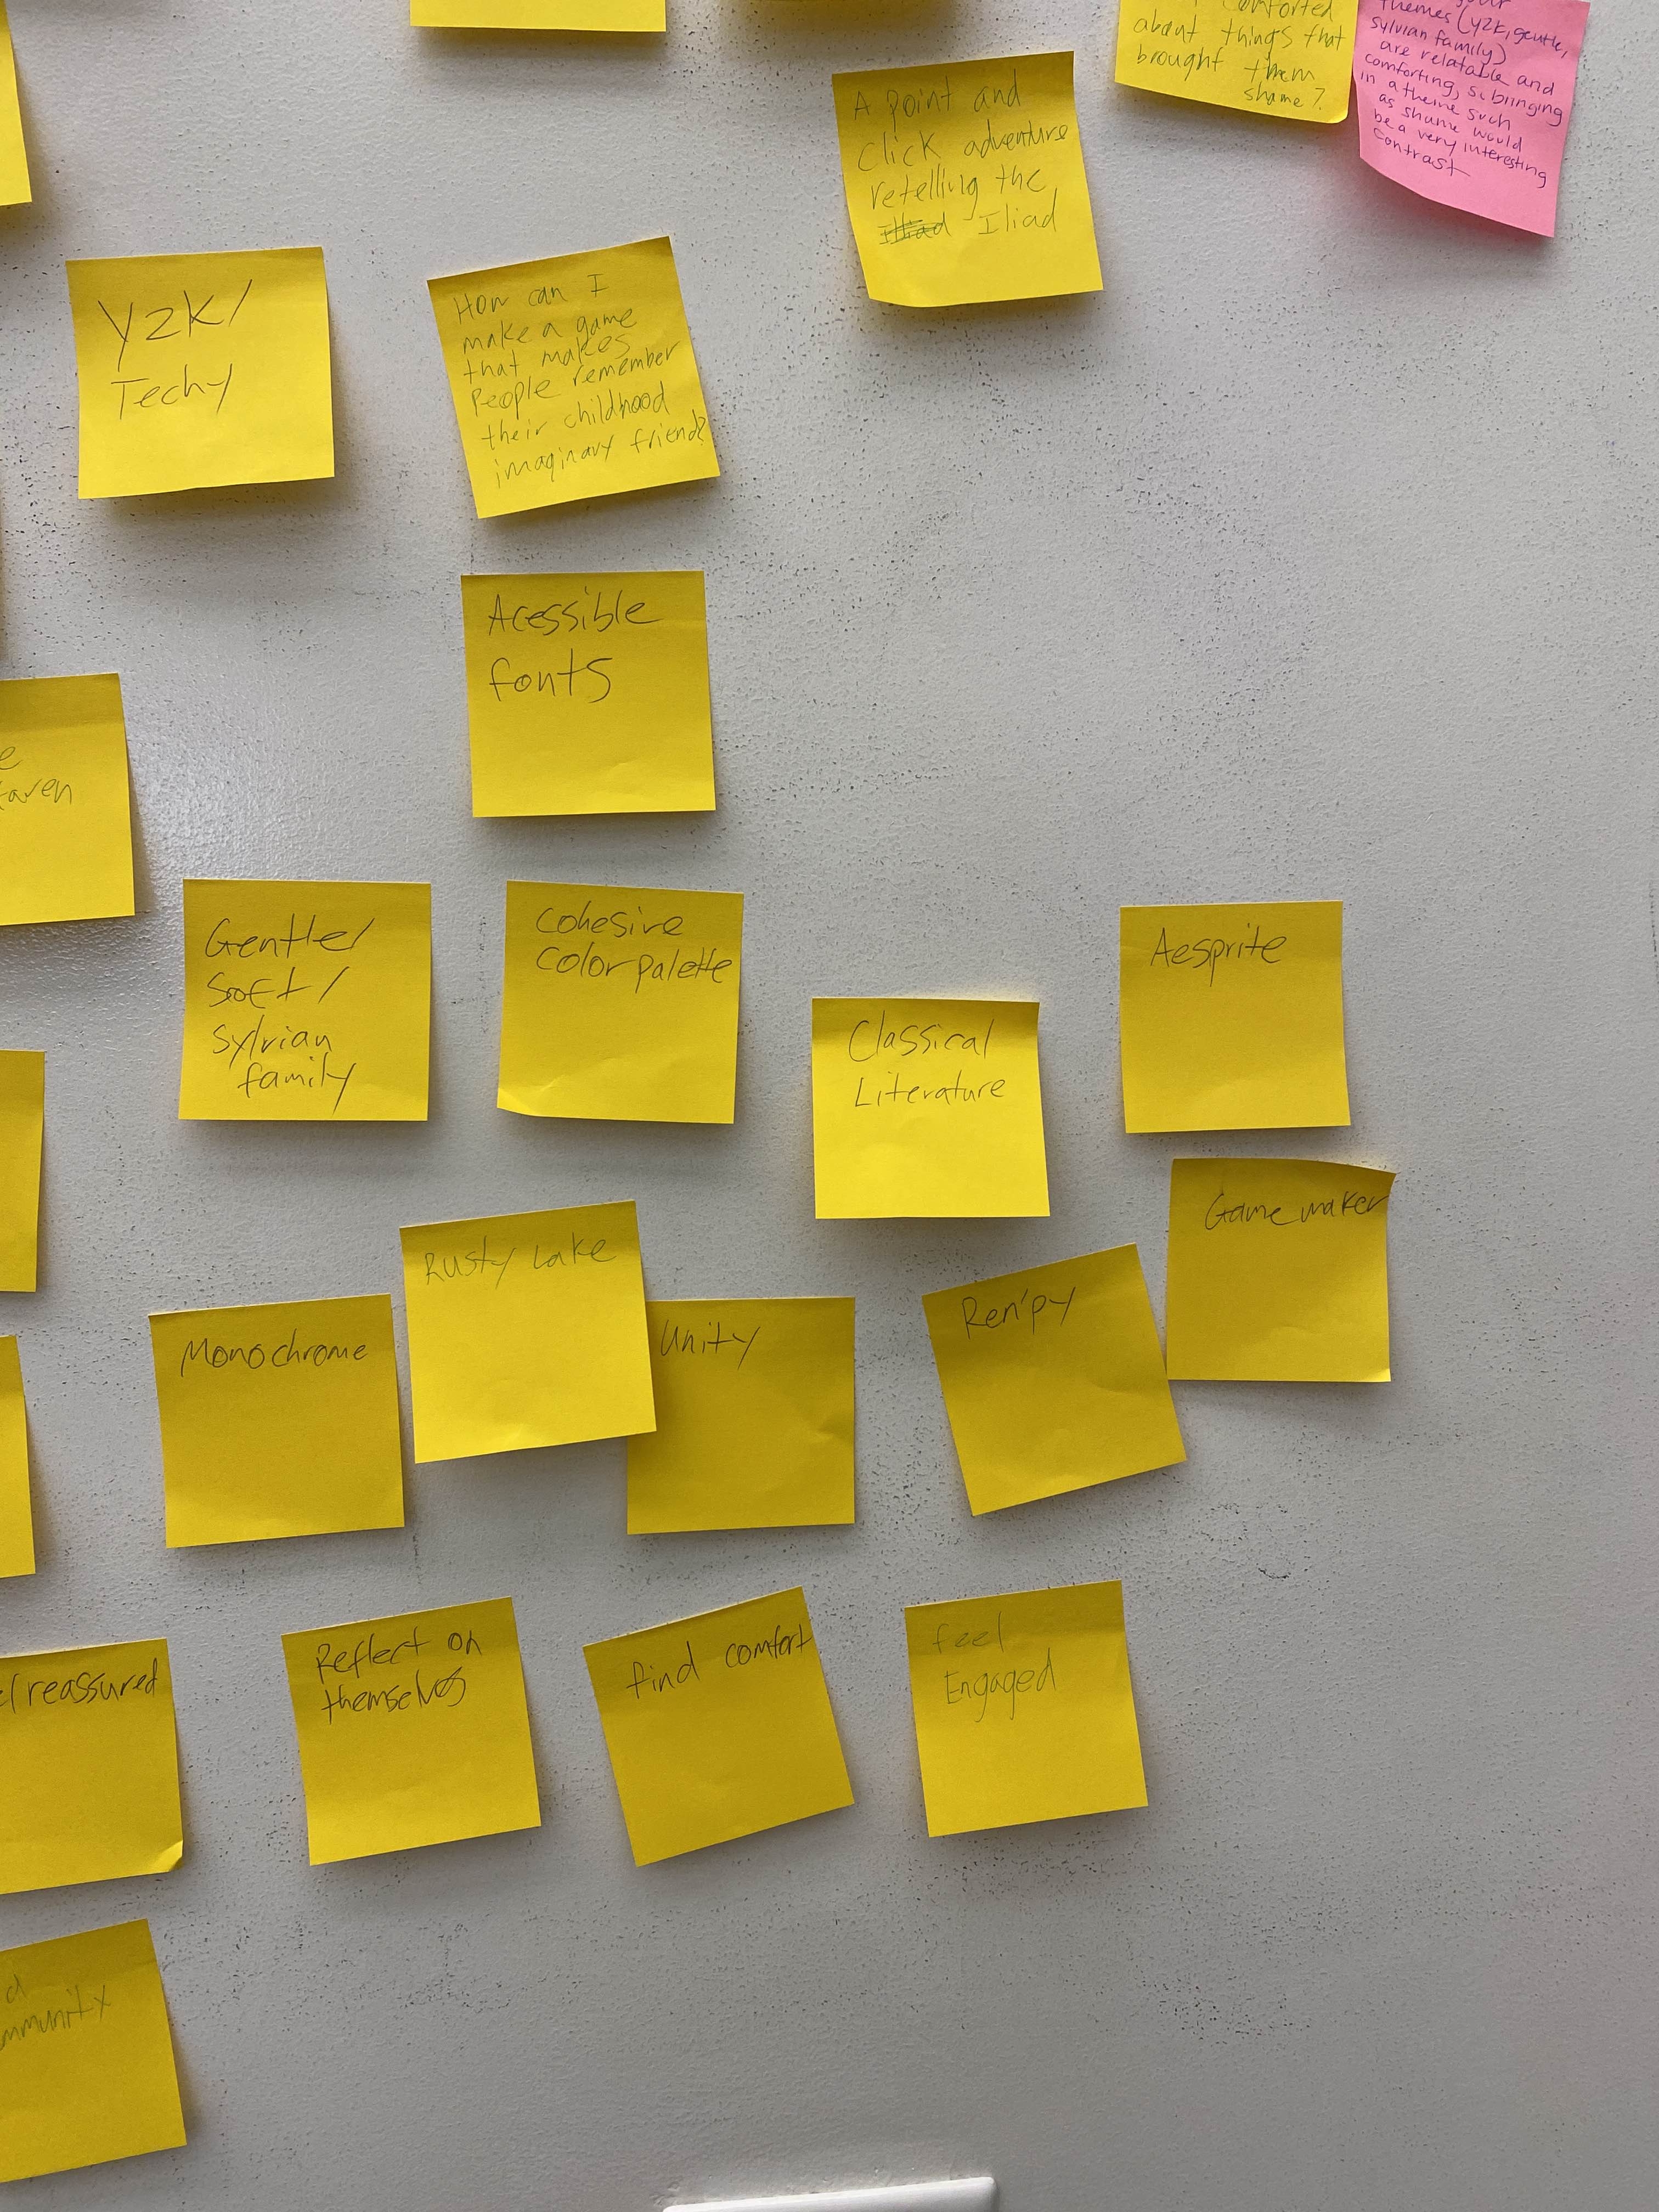 comforted
about things that
brought them
shame?
themes (y2k, gentle,
sylvian family)
are relatable and
comforting, so bringing
in a theme such
as shame would
be a very interesting
contrast
A point and
click adventure
retelling the
Illiad Iliad
Y2K/
Techy
How can I
make a game
that makes
People remember
their childhood
imaginary friend?
Acessible
fonts
taren
Gentle/
Soft/
Sylvian
family
Cohesive
Color palette
Classical
Literature
Aesprite
Gamemaker
Rusty Lake
Monochrome
Unity
Ren'py
reassured
Reflect on
themselves
find comfort
feel
Engaged
d
mmunity